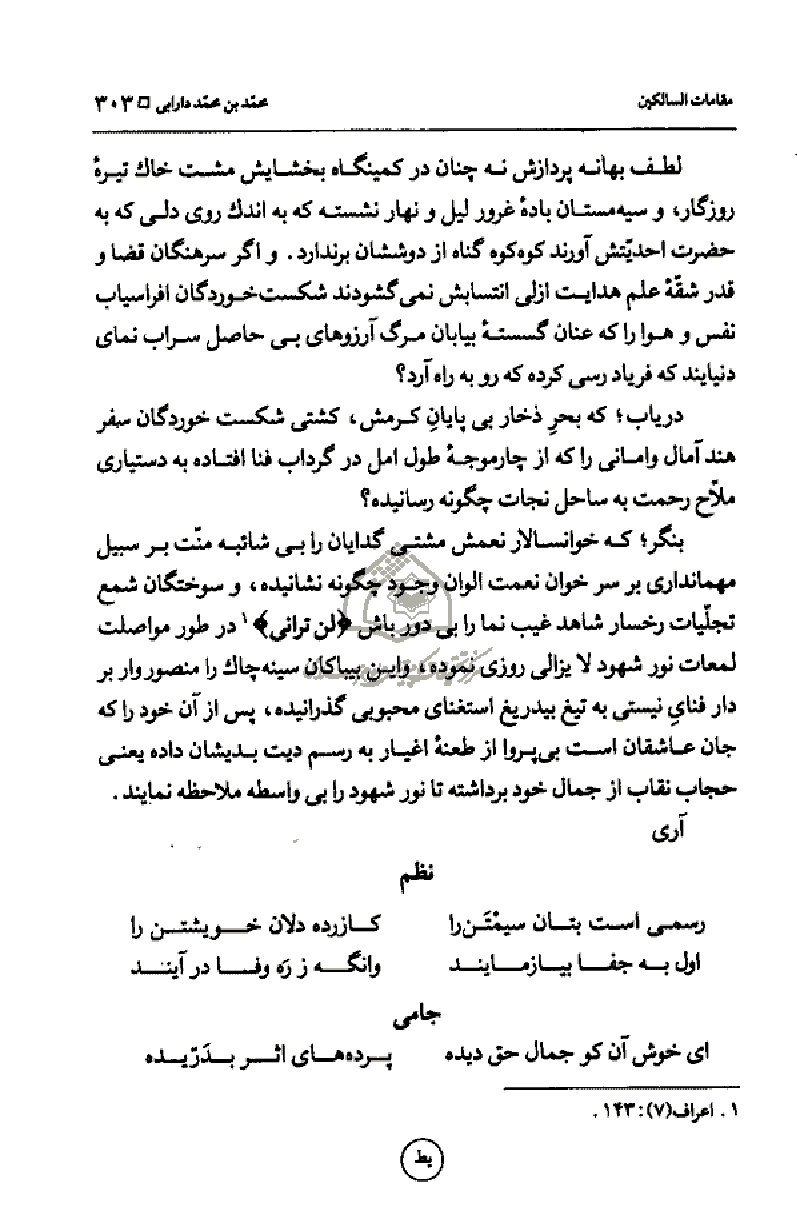 مقامات السالکین
محمّد بن محمّد دارابی □ ۳۰۳
لطف بهانه پردازش نه چنان در کمینگاه بخشایش مشت خاك تیرهٔ
روزگار، و سیه‌مستان بادهٔ غرور لیل و نهار نشسته که به اندك روی دلی که به
حضرت احدیّتش آورند کوه‌کوه گناه از دوششان برندارد. و اگر سرهنگان قضا و
قدر شقّهٔ علم هدایت ازلی انتسابش نمی‌گشودند شکست‌خوردگان افراسیاب
نفس و هوا را که عنان گسستهٔ بیابان مرگ آرزوهای بی حاصل سراب نمای
دنیایند که فریاد رسی کرده که رو به راه آرد؟
دریاب؛ که بحرِ ذخار بی پایانِ کرمش، کشتی شکست خوردگان سفر
هند آمال وامانی را که از چارموجهٔ طول امل در گرداب فنا افتاده به دستیاری
ملاّح رحمت به ساحل نجات چگونه رسانیده؟
بنگر؛ که خوانسالار نعمش مشتی گدایان را بی شائبه منّت بر سبیل
مهمانداری بر سر خوان نعمت الوان وجود چگونه نشانیده، و سوختگان شمع
تجلّیات رخسار شاهد غیب نما را بی دور باش ﴿لن ترانی﴾۱ در طور مواصلت
لمعات نور شهود لا یزالی روزی نموده، واین بیباکان سینه‌چاك را منصور وار بر
دار فنایِ نیستی به تیغ بیدریغ استغنای محبوبی گذرانیده، پس از آن خود را که
جان عاشقان است بی‌پروا از طعنهٔ اغیار به رسم دیت بدیشان داده یعنی
حجاب نقاب از جمال خود برداشته تا نور شهود را بی واسطه ملاحظه نمایند.
آری
نظم
رسمی است بتان سیمْتَن‌را کازرده دلان خویشتن را
اول به جفا بیازمایند وانگه ز رَه وفا در آیند
جامی
ای خوش آن کو جمال حق دیده پرده‌های اثر بدَرّیده
۱. اعراف(۷):۱۴۳.
یط